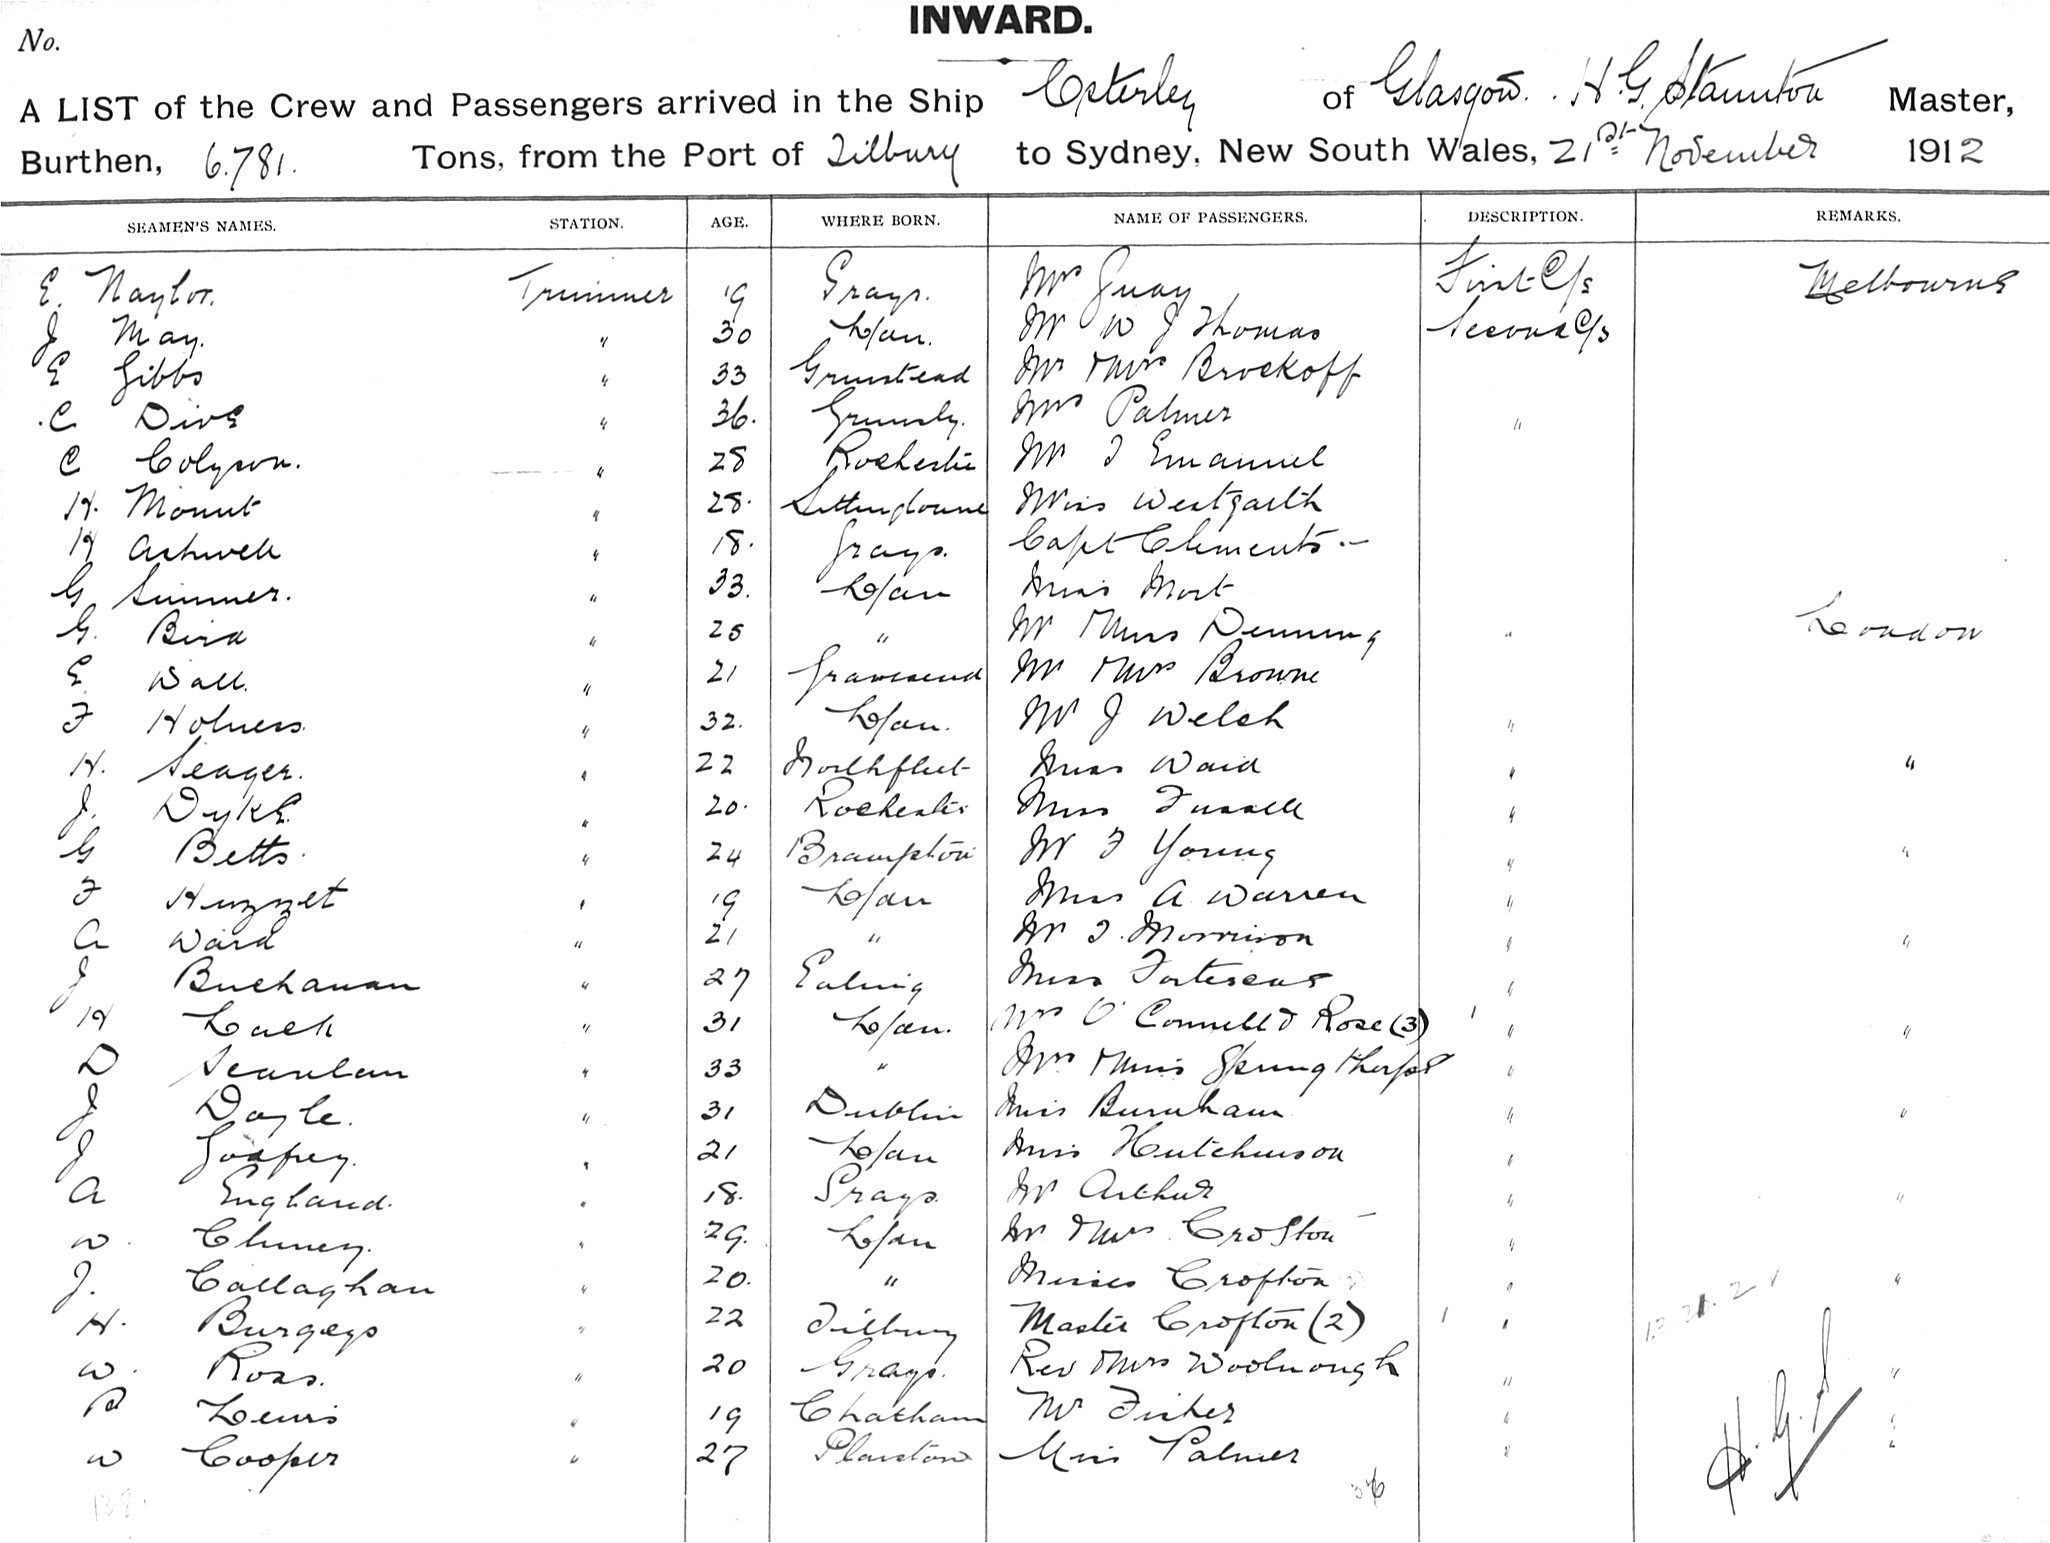 INWARD.
No.
A LIST of the Crew and Passengers arrived in the Ship Osterley of Glasgow. H. G. Staunton Master,
Burthen, 6.781. Tons, from the Port of Tilbury to Sydney, New South Wales, 21st November 1912
SEAMEN'S NAMES. STATION. AGE. WHERE BORN. NAME OF PASSENGERS. DESCRIPTION. REMARKS.
E. Naylor. Trimmer 19 Grays. Mrs Guay First C/s Melbourne
J May. " 30 L/on. Mr W J Thomas Second C/s
E Gibbs " 33 Grinstead Mr & Mrs Brockoff
C Dive " 36. Grimsby. Mrs Palmer "
C Colyson. " 28 Rochester Mr I Emanuel
H. Mount " 28. Sittingbourne Miss Westgarth
H Ashwell " 18. Grays. Capt Clements.-
G Summer. " 33. L/on Miss Mort
G. Bird " 25 " Mr & Mrs Denning " London
E Wall. 21 Gravesend Mr & Mrs Browne
" 
F Holness. " 32. L/on. Mr J Welch "
H. Seager. " 22 Northfleet Miss Ward " "
J. Dyke. " 20. Rochester Miss Fussell "
G Betts. " 24 Brampton Mr F Young " "
F Huzzet " 19 L/on Miss A Warren "
A Ward " 21 " Mr I. Morrison " "
J Buchanan " 27 Ealing Miss Fortescue "
H Lack " 31 L/on. Mrs O'Connell & Rose (3) " "
D Scanlan " 33 " Mrs & Miss Springthorpe "
J Doyle. " 31 Dublin Miss Burnham " "
J Godfrey. " 21 L/on Miss Hutchinson "
A England. " 18. Grays. Mr Arthur " "
W. Cluney. " 29. L/on Mr & Mrs Crofton "
J. Callaghan " 20. " Misses Crofton " "
H. Burgess " 22 Tilbury Master Crofton (2) "
W. Ross. " 20 Grays. Rev & Mrs Woolnough " "
Lewis " 19 Chatham Mr Fisher " "
W Cooper " 27 Plaistow Miss Palmer " "
H. G. S